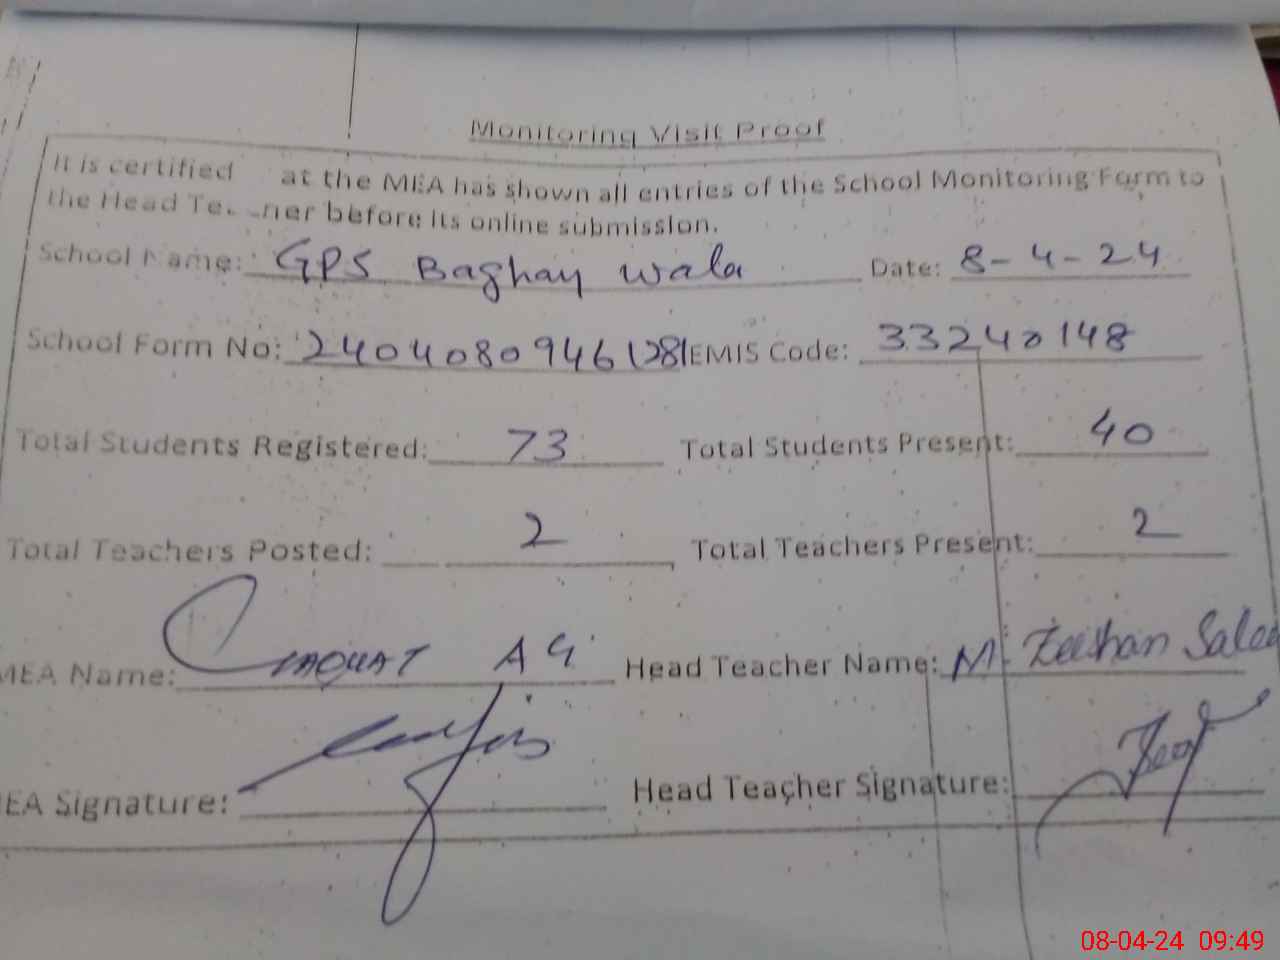 Monitoring Visit Proof
It is certified at the MEA has shown all entries of the School Monitoring Form to
the Head Te ner before its online submission.
School Name: GPS Baghay wala Date: 8-4-24
School Form No: 24040809461281 EMIS Code: 33240148
Total Students Registered: 73 Total Students Present: 40
Total Teachers Posted: 2 Total Teachers Present: 2
MEA Name: LIAQUAT Head Teacher Name: M. Zeeshan
EA Signature: Head Teacher Signature:
08-04-24 09:49